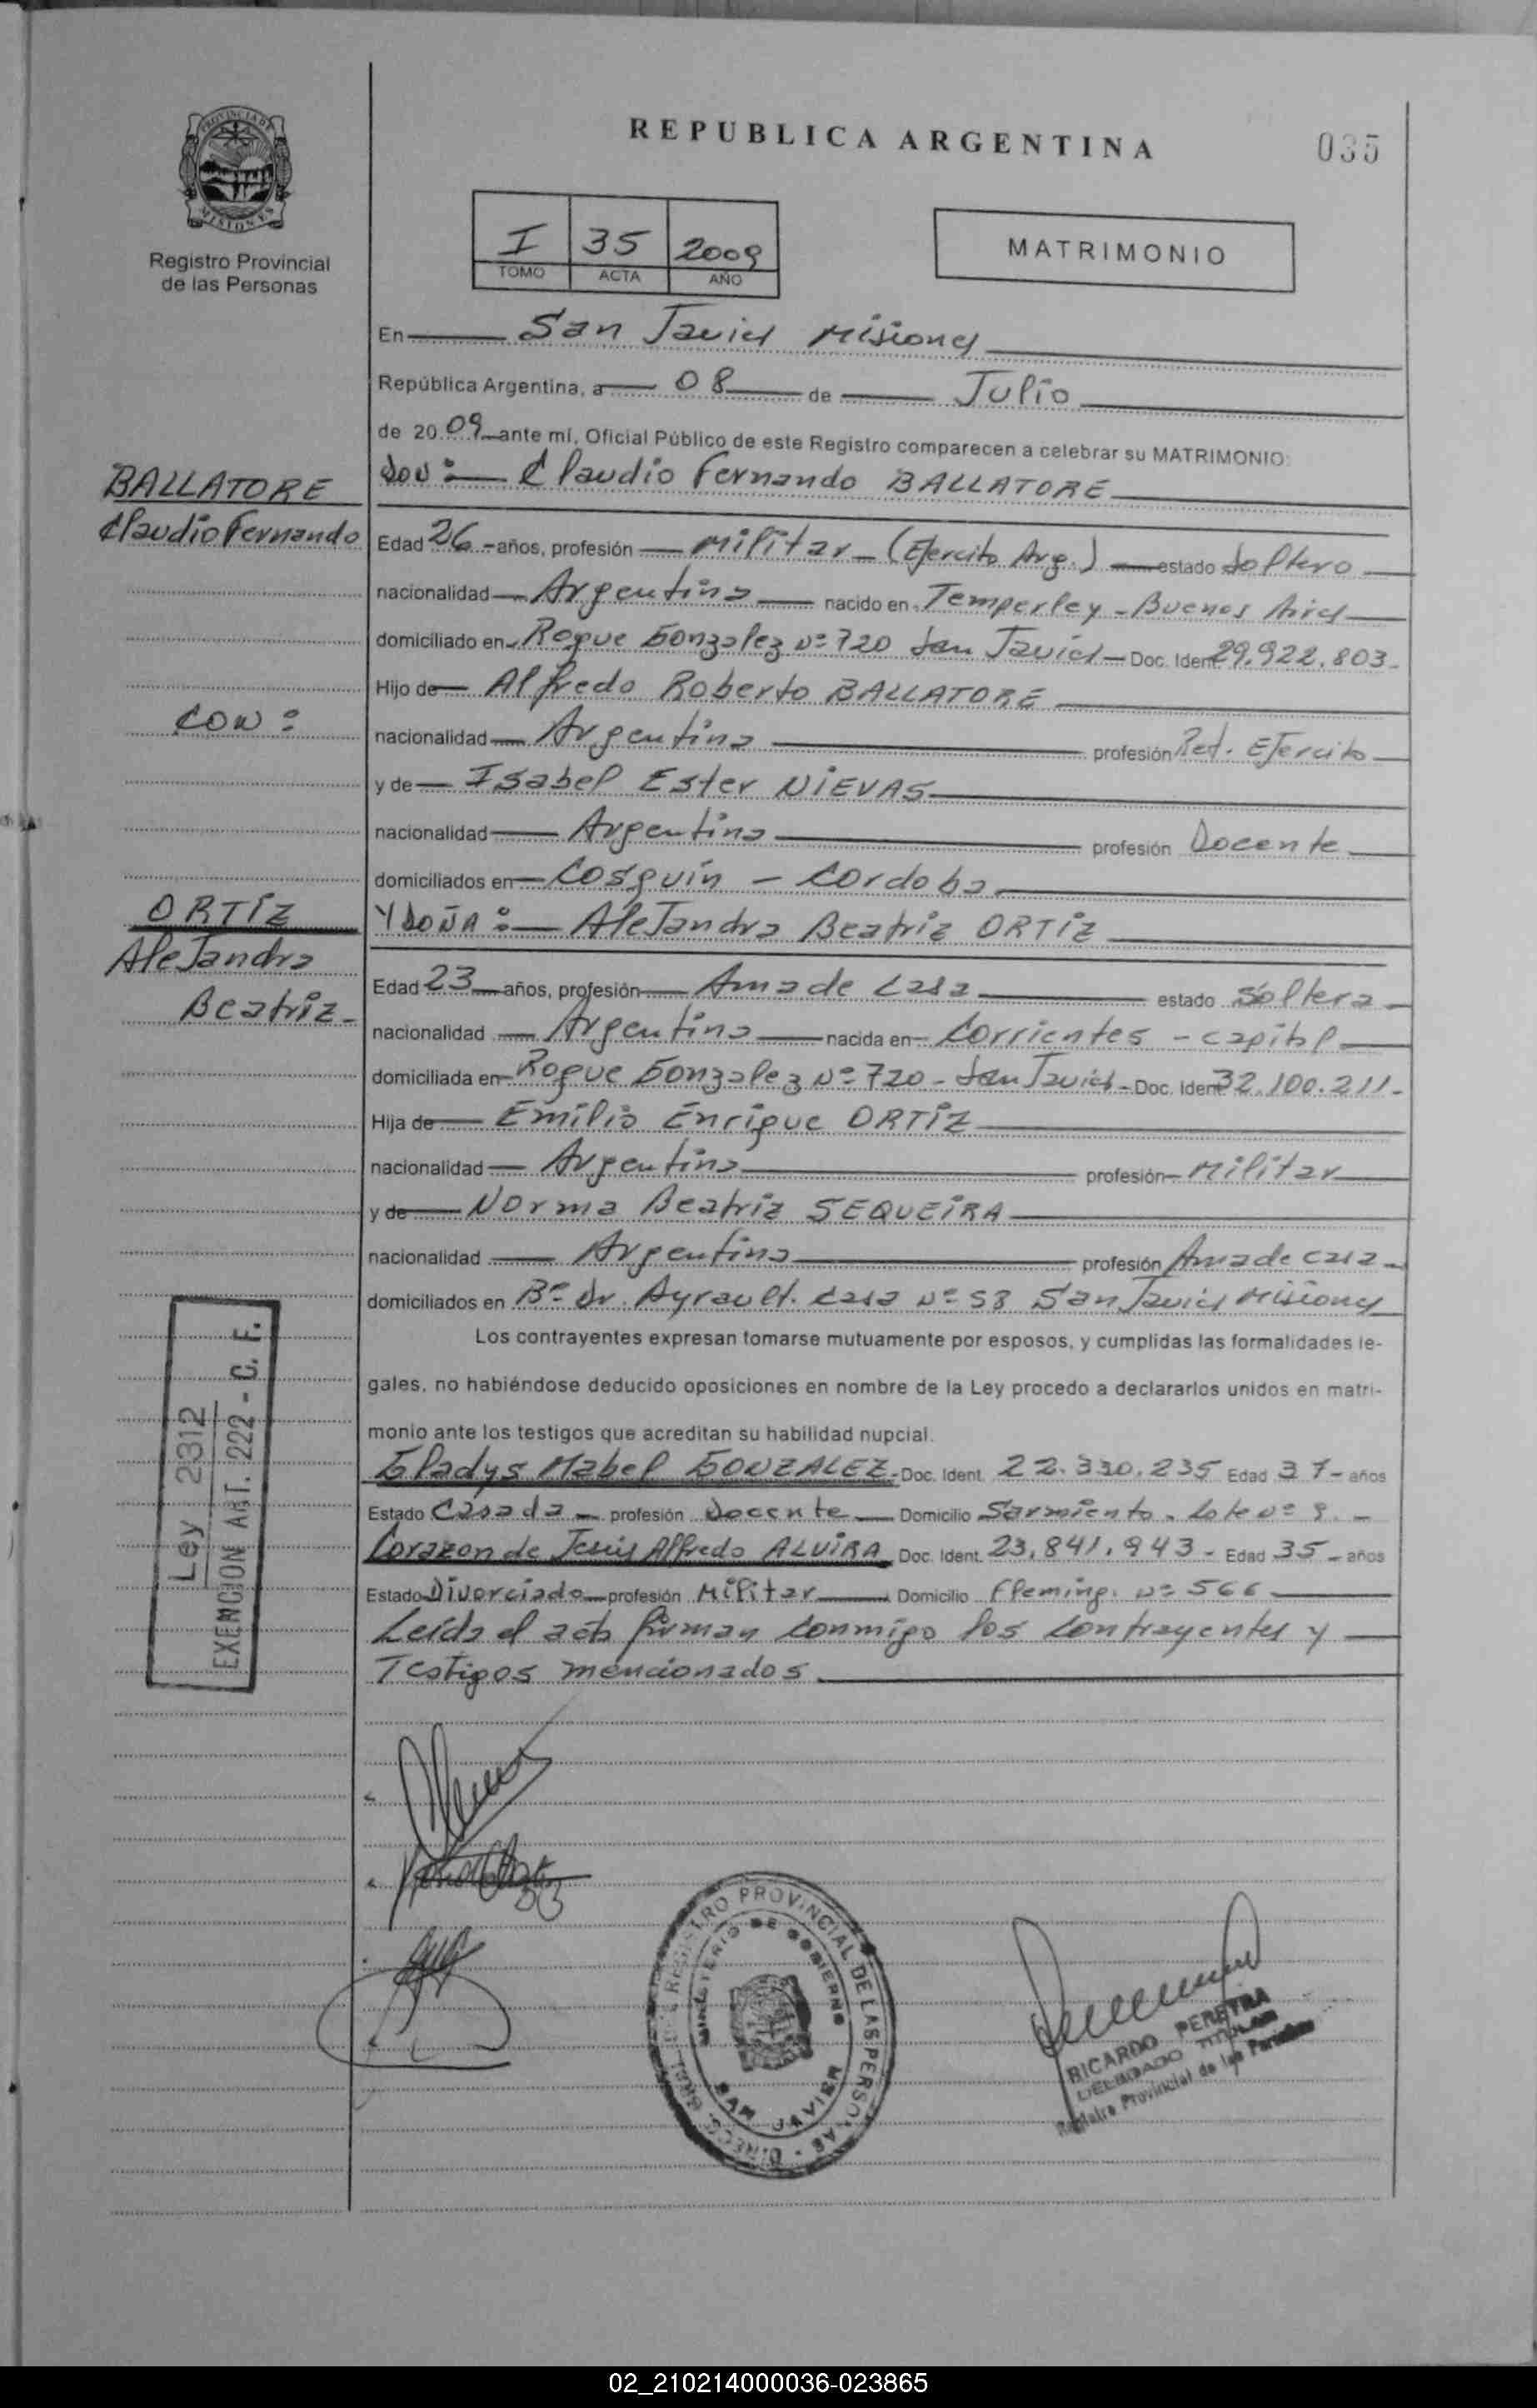 PROVINCIA DE
MISIONES
Registro Provincial
de las Personas
REPUBLICA ARGENTINA
035
I 35 2009
TOMO ACTA AÑO
MATRIMONIO
En San Javier Misiones
República Argentina, a 08 de Julio
de 2009 ante mí, Oficial Público de este Registro comparecen a celebrar su MATRIMONIO:
BALLATORE
Don: Claudio Fernando BALLATORE
Claudio Fernando
Edad 26 - años, profesión Militar - (Ejercito Arg.) estado Soltero
nacionalidad Argentina nacido en Temperley - Buenos Aires
domiciliado en Roque Gonzalez Nº 720 San Javier - Doc. Ident 29.922.803.
Hijo de Alfredo Roberto BALLATORE
CON:
nacionalidad Argentina profesión Ret. Ejercito
y de Isabel Ester NIEVAS
nacionalidad Argentina profesión Docente
domiciliados en Cosquín - Cordoba
ORTIZ
Y DOÑA: AleJandra Beatriz ORTIZ
AleJandra
Edad 23 años, profesión Ama de Casa estado Soltera
Beatriz -
nacionalidad Argentina nacida en Corrientes - capital
domiciliada en Roque Gonzalez Nº 720 - San Javier - Doc. Ident 32.100.211.
Hija de Emilio Enrique ORTIZ
nacionalidad Argentina profesión Militar
y de Norma Beatriz SEQUEIRA
nacionalidad Argentina profesión Ama de casa
domiciliados en Bº Dr. Ayrault. Casa Nº 58 San Javier Misiones
Los contrayentes expresan tomarse mutuamente por esposos, y cumplidas las formalidades le-
gales, no habiéndose deducido oposiciones en nombre de la Ley procedo a declararlos unidos en matri-
monio ante los testigos que acreditan su habilidad nupcial.
Gladys Mabel GONZALEZ - Doc. Ident. 22.330.235 Edad 37 - años
Estado Casada - profesión Docente Domicilio Sarmiento. Lote Nº 9. -
Corazon de Jesús Alfredo ALVIRA Doc. Ident. 23.841.943 - Edad 35 - años
Estado Divorciado profesión Militar Domicilio Fleming. Nº 566
Leída el acta firman conmigo los contrayentes y
Testigos mencionados
Ley 2312
EXENCION ART. 222 - C. F.
DIRECC. GRAL. DEL REGISTRO PROVINCIAL DE LAS PERSONAS
MINISTERIO DE GOBIERNO
SAN JAVIER
RICARDO PEREYRA
DELEGADO TITULAR
Registro Provincial de las Personas
02_210214000036-023865